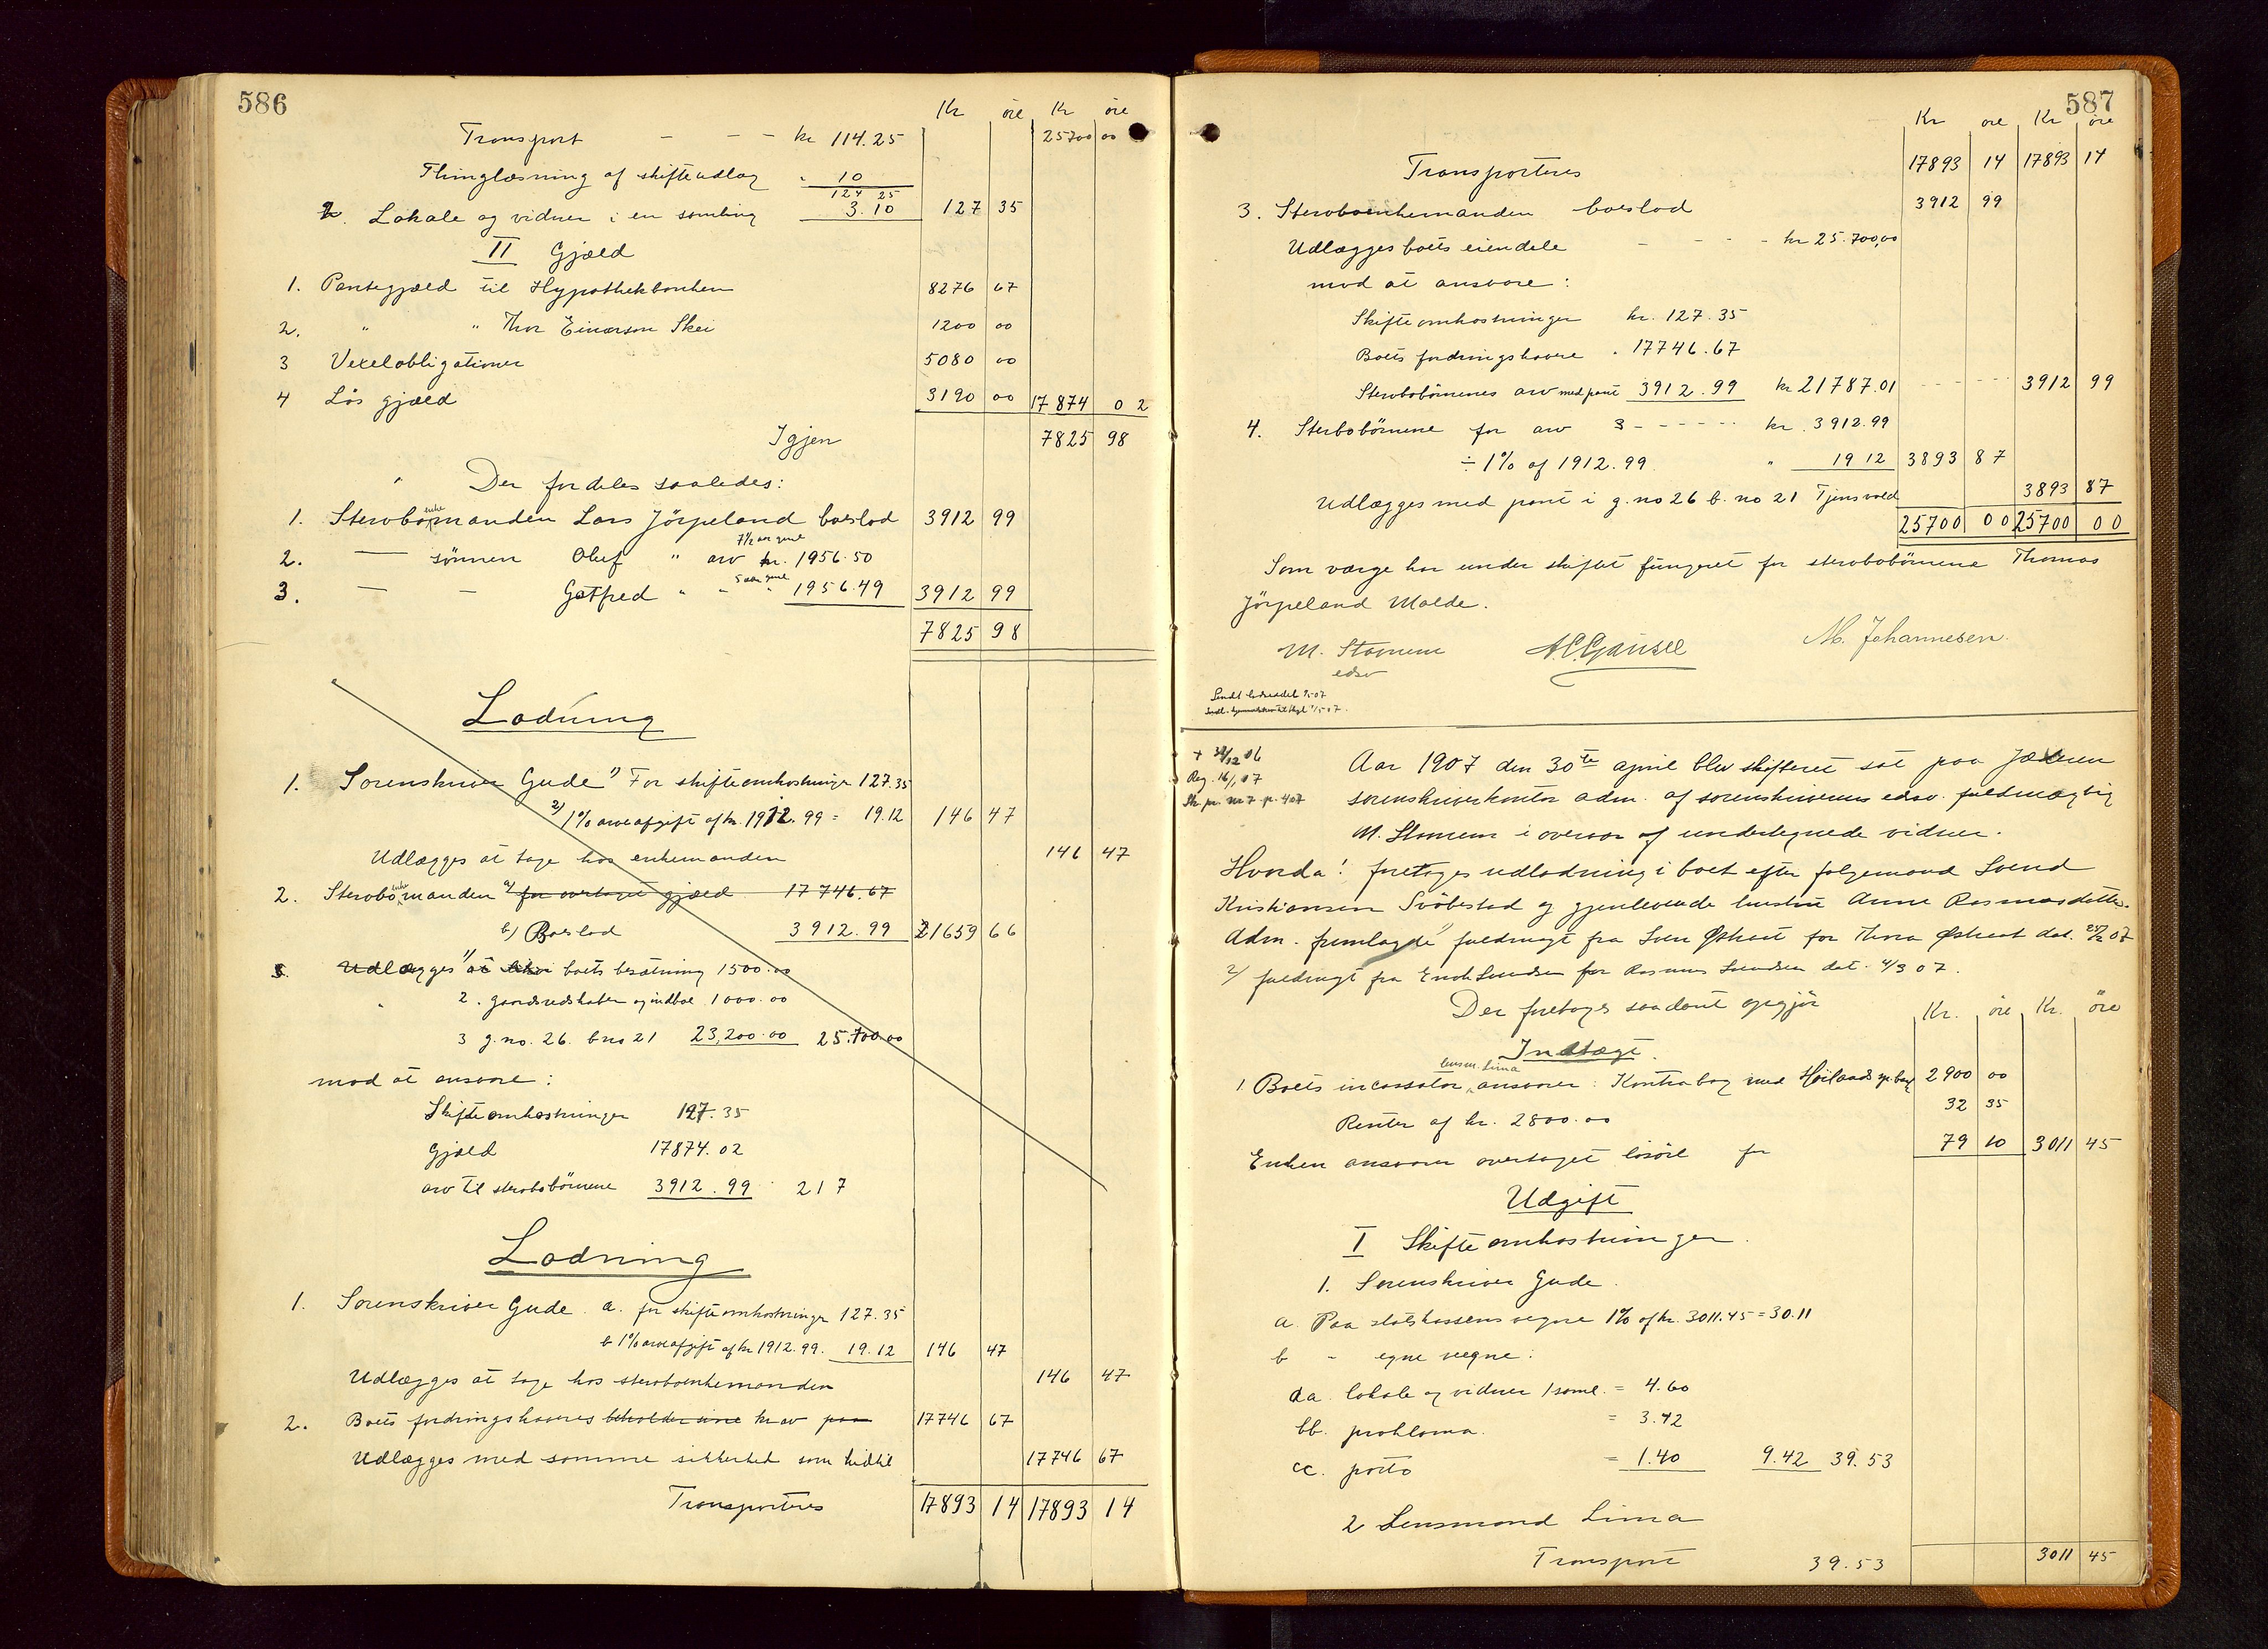 586
Kr øre Kr øre
Transport - - - kr 114.25 25700 00
Thinglæsning af skifteudlæg " 10
124 25
2. Lokale og vidner i en samling 3.10 127 35
II Gjæld
1. Pantegjæld til Hypothekbanken 8276 67
2. " " Thor Einarson Skei 1200 00
3 Vexelobligationer 5080 00
4 Løs gjæld 3190 00 17874 02
Igjen 7825 98
Der fordeles saaledes:
1. Sterboenkemanden Lars Jörpeland boeslod 3912 99
7½ aar gml
2. — sønnen Oluf " arv kr. 1956.50
5 aar gml
3. — - Gotfred " - " 1956.49 3912 99
7825 98
Lodning
1. Sorenskriver Gude 1) For skifteomkostninger 127.35
2) 1% arveafgift af kr. 1912.99 = 19.12 146 47
Udlægges at tage hos enkemanden 146 47
2. Sterboenkemanden a) for overtaget gjæld 17746.67
b) Boeslod 3912.99 21659 66
3. Udlægges 1) at boets besætning 1500.00
2. gaardsredskaber og indboe 1000.00
3 g.no. 26. bno 21 23,200.00 25.700.00
mod at ansvare:
Skifteomkostninger 127.35
Gjæld 17874.02
arv til sterbobörnene 3912.99 217
Lodning
1. Sorenskriver Gude. a. for skifteomkostninger 127.35
b 1% arveafgift af kr 1912.99. 19.12 146 47
Udlægges at tage hos sterboenkemanden 146 47
2. Boets fordringshaveres beholder sine krav paa 17746 67
Udlægges med samme sikkerhed som hidtil 17746 67
Transporteres 17893 14 17893 14
587
Kr øre Kr øre
Transporteres 17893 14 17893 14
3. Sterboenkemanden boeslod 3912 99
Udlægges boets eiendele - - - - kr 25.700,00
mod at ansvare:
Skifteomkostninger kr. 127.35
Boets fordringshavere " 17746.67
Sterbobörnenes arv med pant 3912.99 kr 21787.01 - - - - - 3912 99
4. Sterbobörnene for arv 3 - - - - - kr. 3912.99
÷ 1% af 1912.99 " 19 12 3893 87
Udlægges med pant i g.no 26 b.no 21 Tjensvold 3893 87
25700 00 25700 00
Som værge har under skiftet fungeret for sterbobörnene Thomas
Jörpeland Malde.
M. Stamem A.C.Gausel M. Johannesen.
edsv
† 31/12 06
Reg. 16/1 07
Sk. pr. no 7 p. 407
Aar 1907 den 30te april blev skifteret sat paa Jæderen
sorenskriverkontor adm. af sorenskriverens edsv. fuldmægtig
M. Stamem i overvær af undertegnede vidner.
Hvorda: foretages udlodning i boet efter folgemand Svend
Kristiansen Svöbestad og gjenlevende hustru Anne Rasmusdatter.
Adm. fremlagde 1) fuldmagt fra Sven Østraat for Thora Østraat dat. 25/2 07
2/ fuldmagt fra Svendsen for Rasmus Svendsen dat. 4/3 07.
Der foretages saadant opgjör Kr. øre Kr. øre
Indtægt.
lensm. Lima
1. Boets incassator ansvarer: Kontrabog med Höilands sp.bank 2900 00
Renter af kr. 2800.00 32 35
Enken ansvarer overtaget lösöre for 79 10 3011 45
Udgift
I Skifteomkostninger.
1. Sorenskriver Gude.
a. Paa statskassens vegne 1% af kr. 3011.45 = 30.11
b - egne vegne:
aa. lokale og vidner 1 saml. = 4.60
bb. proklama. = 3.42
cc. porto = 1.40 9.42 39.53
2 Lensmand Lima
Transport 39.53 3011 45